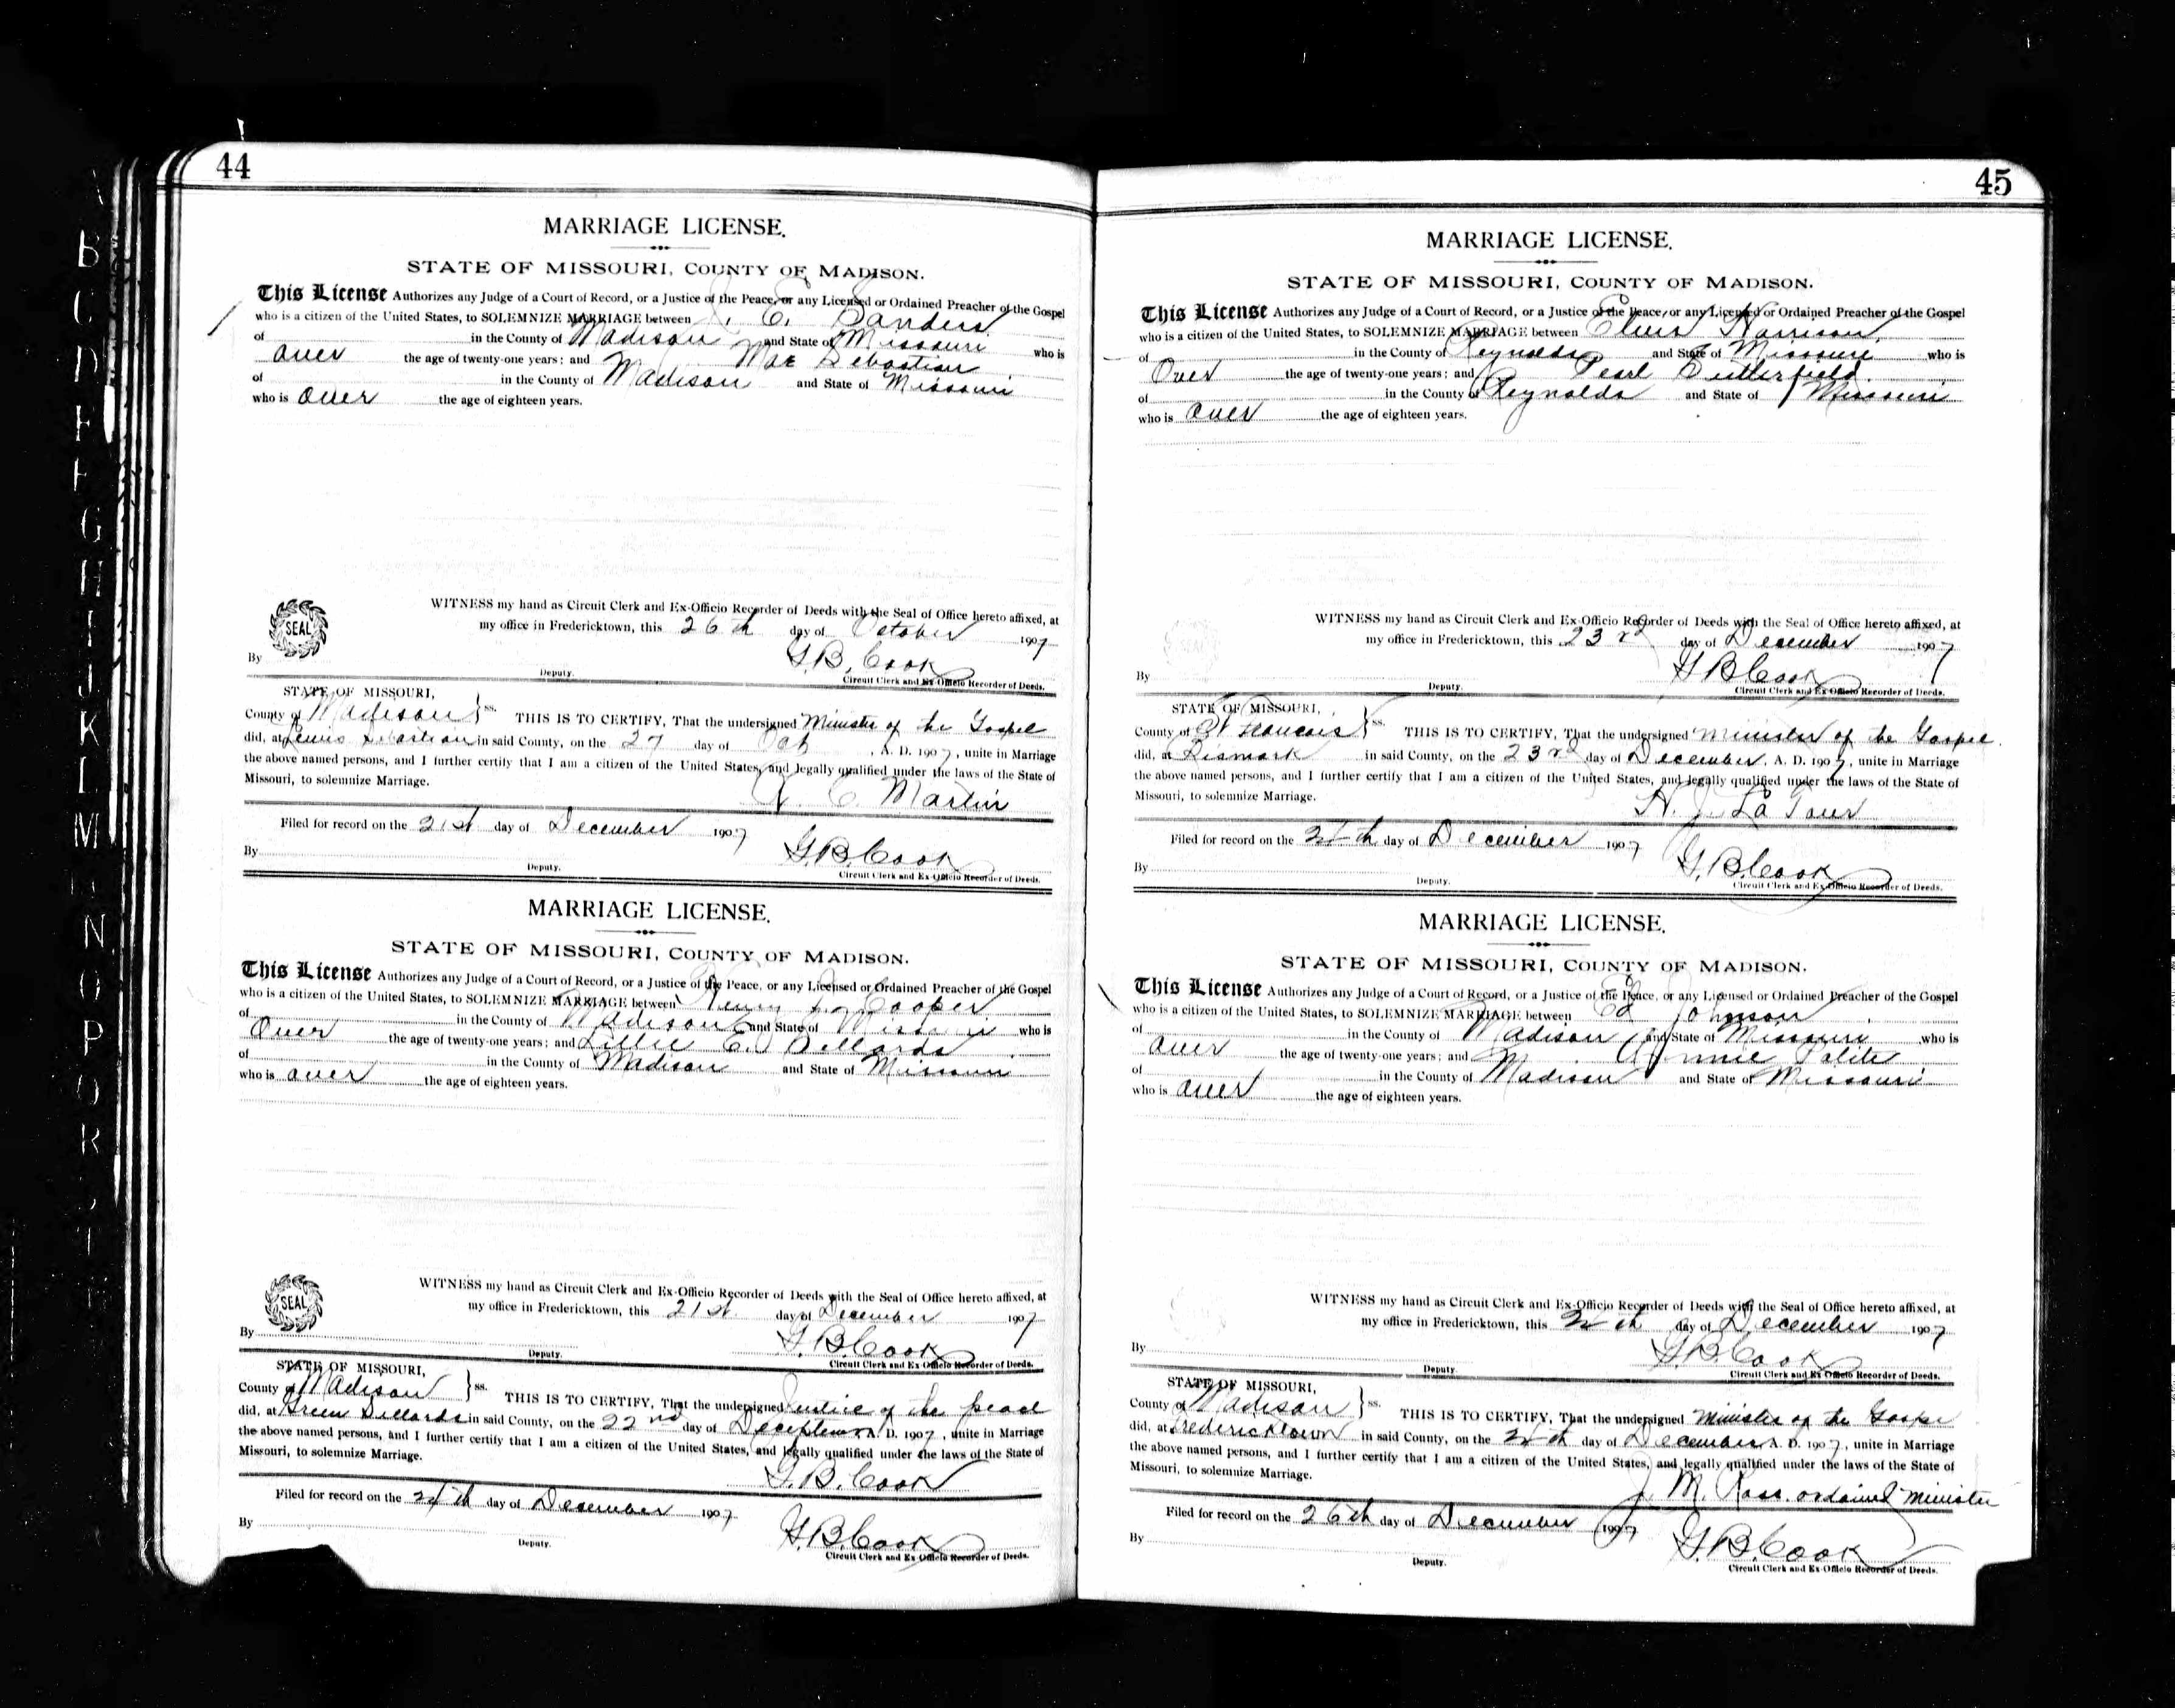 44
MARRIAGE LICENSE.
STATE OF MISSOURI, COUNTY OF MADISON.
This License Authorizes any Judge of a Court of Record, or a Justice of the Peace, or any Licensed or Ordained Preacher of the Gospel
who is a citizen of the United States, to SOLEMNIZE MARRIAGE between E. Sanders
of in the County of Madison and State of Missouri who is
over the age of twenty-one years; and Mae Sebastian
of in the County of Madison and State of Missouri
who is over the age of eighteen years.
WITNESS my hand as Circuit Clerk and Ex-Officio Recorder of Deeds with the Seal of Office hereto affixed, at
SEAL
my office in Fredericktown, this 26th day of October 1907
By G.B. Cook
Deputy. Circuit Clerk and Ex-Officio Recorder of Deeds.
STATE OF MISSOURI,
County of Madison } ss. THIS IS TO CERTIFY, That the undersigned Minister of the Gospel
did, at Lewis Sebastian in said County, on the 27 day of Oct, A. D. 1907, unite in Marriage
the above named persons, and I further certify that I am a citizen of the United States, and legally qualified under the laws of the State of
Missouri, to solemnize Marriage.
C. Martin
Filed for record on the 21st day of December 1907
By G.B. Cook
Deputy. Circuit Clerk and Ex-Officio Recorder of Deeds.
MARRIAGE LICENSE.
STATE OF MISSOURI, COUNTY OF MADISON.
This License Authorizes any Judge of a Court of Record, or a Justice of the Peace, or any Licensed or Ordained Preacher of the Gospel
who is a citizen of the United States, to SOLEMNIZE MARRIAGE between Henry Cooper
of in the County of Madison and State of Missouri who is
Over the age of twenty-one years; and Lillie E. Sellards
of in the County of Madison and State of Missouri
who is over the age of eighteen years.
WITNESS my hand as Circuit Clerk and Ex-Officio Recorder of Deeds with the Seal of Office hereto affixed, at
SEAL
my office in Fredericktown, this 21st day of December 1907
By G.B. Cook
Deputy. Circuit Clerk and Ex-Officio Recorder of Deeds.
STATE OF MISSOURI,
County of Madison } ss. THIS IS TO CERTIFY, That the undersigned Justice of the peace
did, at Green Sellards in said County, on the 22nd day of A. D. 1907, unite in Marriage
the above named persons, and I further certify that I am a citizen of the United States, and legally qualified under the laws of the State of
Missouri, to solemnize Marriage.
G.B. Cook
Filed for record on the 24th day of December 1907
By G.B. Cook
Deputy. Circuit Clerk and Ex-Officio Recorder of Deeds.
45
MARRIAGE LICENSE.
STATE OF MISSOURI, COUNTY OF MADISON.
This License Authorizes any Judge of a Court of Record, or a Justice of the Peace, or any Licensed or Ordained Preacher of the Gospel
who is a citizen of the United States, to SOLEMNIZE MARRIAGE between Harrison
of in the County of Reynolds and State of Missouri who is
Over the age of twenty-one years; and Pearl Butterfield
of in the County of Reynolds and State of Missouri
who is over the age of eighteen years.
WITNESS my hand as Circuit Clerk and Ex-Officio Recorder of Deeds with the Seal of Office hereto affixed, at
my office in Fredericktown, this 23rd day of December 1907
By G.B. Cook
Deputy. Circuit Clerk and Ex-Officio Recorder of Deeds.
STATE OF MISSOURI,
County of St Francois } ss. THIS IS TO CERTIFY, That the undersigned Minister of the Gospel
did, at Bismark in said County, on the 23rd day of December, A. D. 1907, unite in Marriage
the above named persons, and I further certify that I am a citizen of the United States, and legally qualified under the laws of the State of
Missouri, to solemnize Marriage.
J. La Tour
Filed for record on the 24th day of December 1907
By G.B. Cook
Deputy. Circuit Clerk and Ex-Officio Recorder of Deeds.
MARRIAGE LICENSE.
STATE OF MISSOURI, COUNTY OF MADISON.
This License Authorizes any Judge of a Court of Record, or a Justice of the Peace, or any Licensed or Ordained Preacher of the Gospel
who is a citizen of the United States, to SOLEMNIZE MARRIAGE between Ed Johnson
of in the County of Madison and State of Missouri who is
over the age of twenty-one years; and
of in the County of Madison and State of Missouri
who is over the age of eighteen years.
WITNESS my hand as Circuit Clerk and Ex-Officio Recorder of Deeds with the Seal of Office hereto affixed, at
my office in Fredericktown, this 24th day of December 1907
By G.B. Cook
Deputy. Circuit Clerk and Ex-Officio Recorder of Deeds.
STATE OF MISSOURI,
County of Madison } ss. THIS IS TO CERTIFY, That the undersigned Minister of the Gospel
did, at Fredericktown in said County, on the 24th day of December A. D. 1907, unite in Marriage
the above named persons, and I further certify that I am a citizen of the United States, and legally qualified under the laws of the State of
Missouri, to solemnize Marriage.
J. M. Ross. ordained minister
Filed for record on the 26th day of December 1907
By G.B. Cook
Deputy. Circuit Clerk and Ex-Officio Recorder of Deeds.